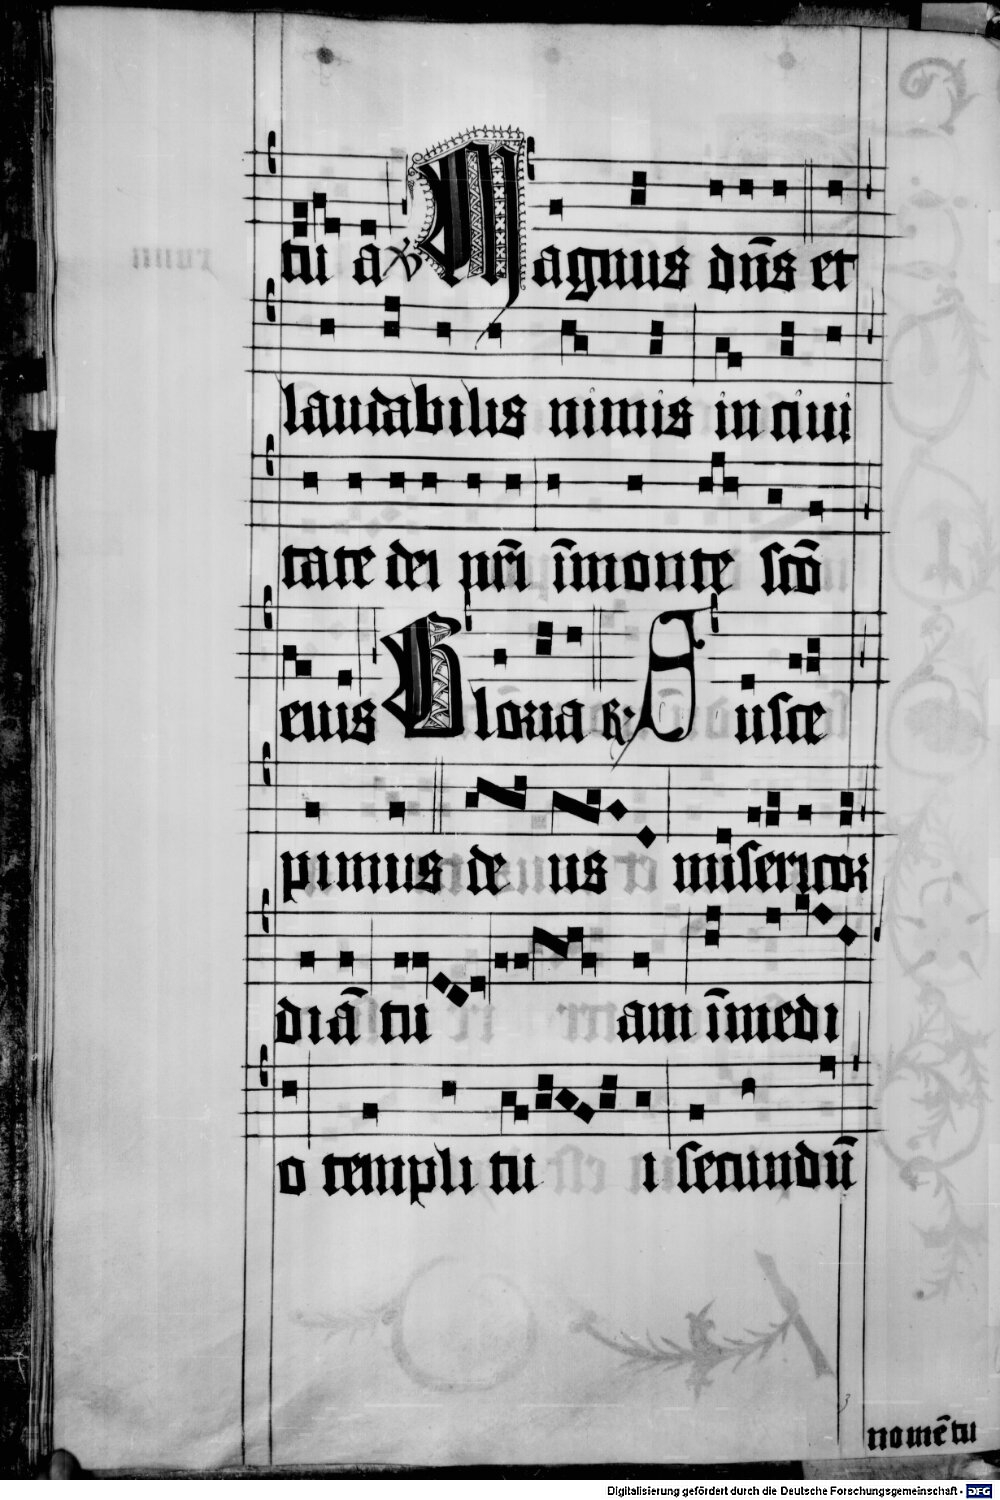 tu a Magnus dn̄s et
laudabilis nimis in ciui
tate dei nr̄i ī monte sc̄o
eius Gloria R Susce
pimus de us misericor
diā tu am ī medi
o templi tu i secundū
nomē tu
Digitalisierung gefördert durch die Deutsche Forschungsgemeinschaft - DFG